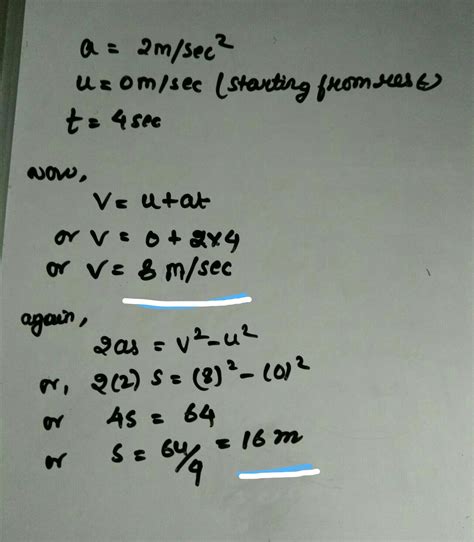 a = 2m/sec²
u = 0 m/sec (starting from rest)
t = 4 sec
now,
v = u+at
or v = 0 + 2×4
or v = 8 m/sec
again,
2as = v²-u²
or, 2(2) s = (8)² - (0)²
or 4s = 64
or s = 64/4 = 16 m